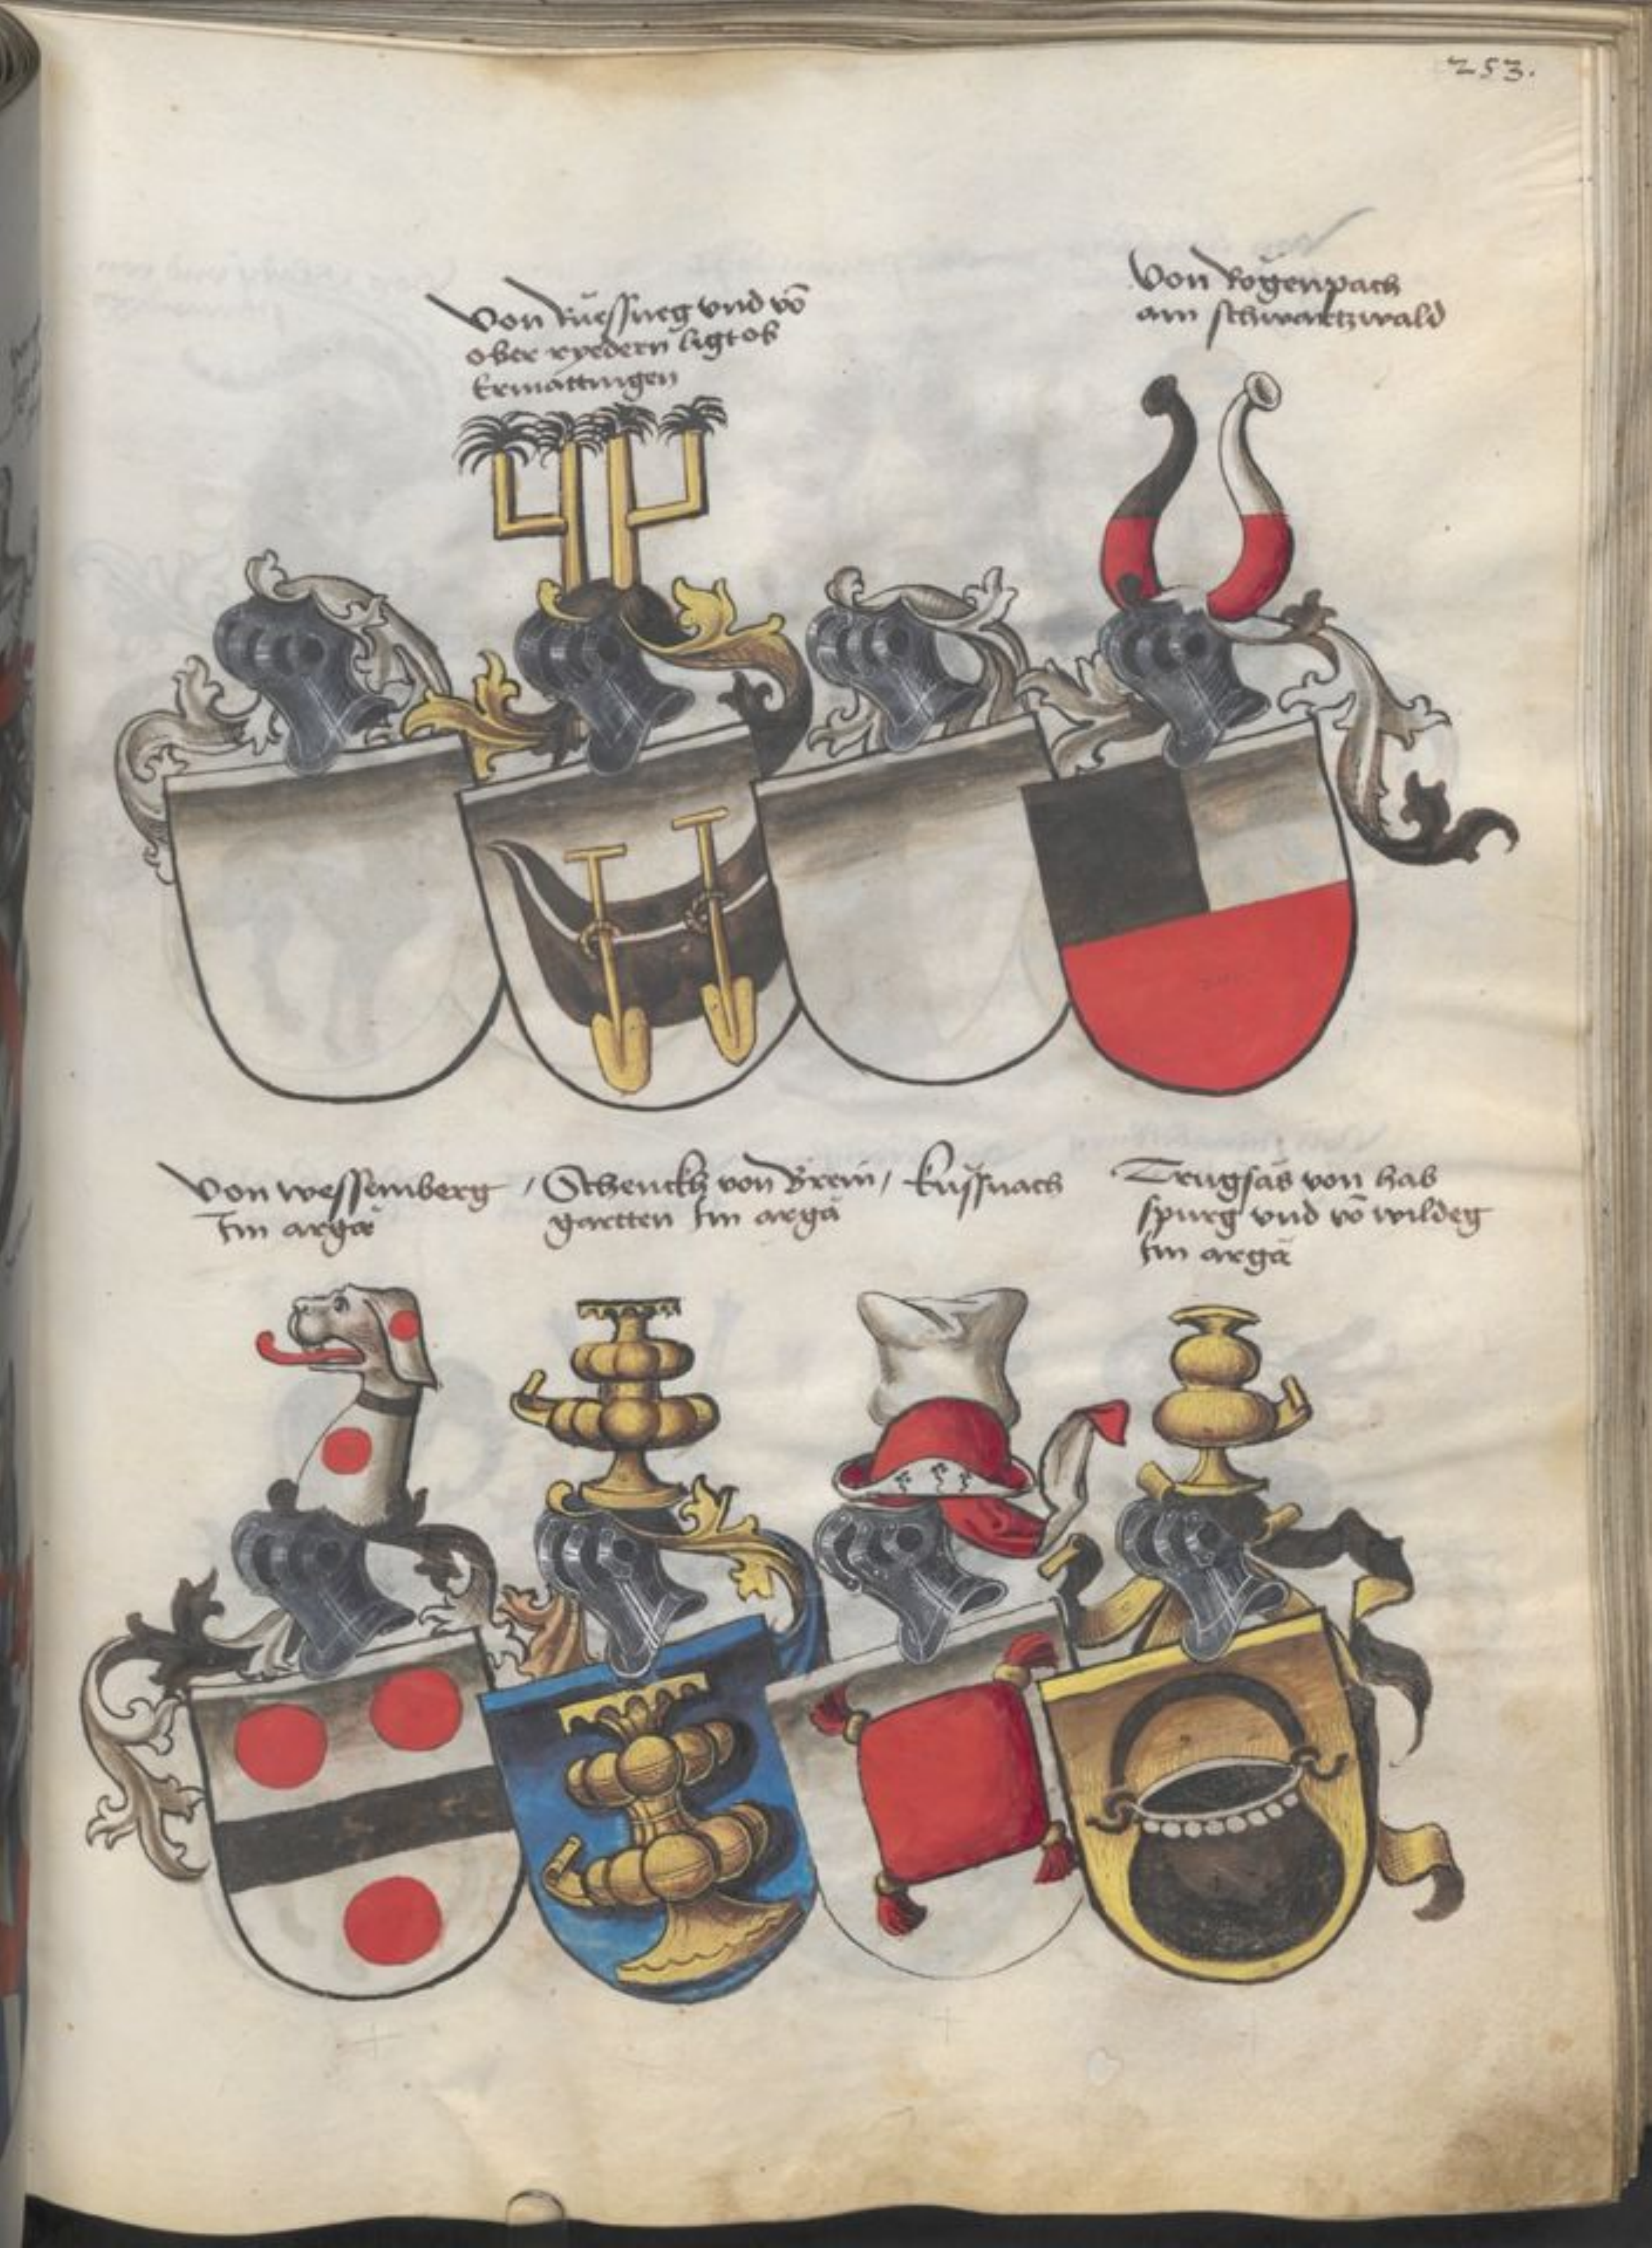 253.
Von Rüessueg vnd vō
ober ryedern ligt ob
Ermattingen
Von Rogenpach
am schwartzwald
Von wessemberg
Im argä
/ Schenckh von Brem /
gartten Im argä
Küssnach
Trugsäs von hab
spurg vnd vō wildeg
Im argä